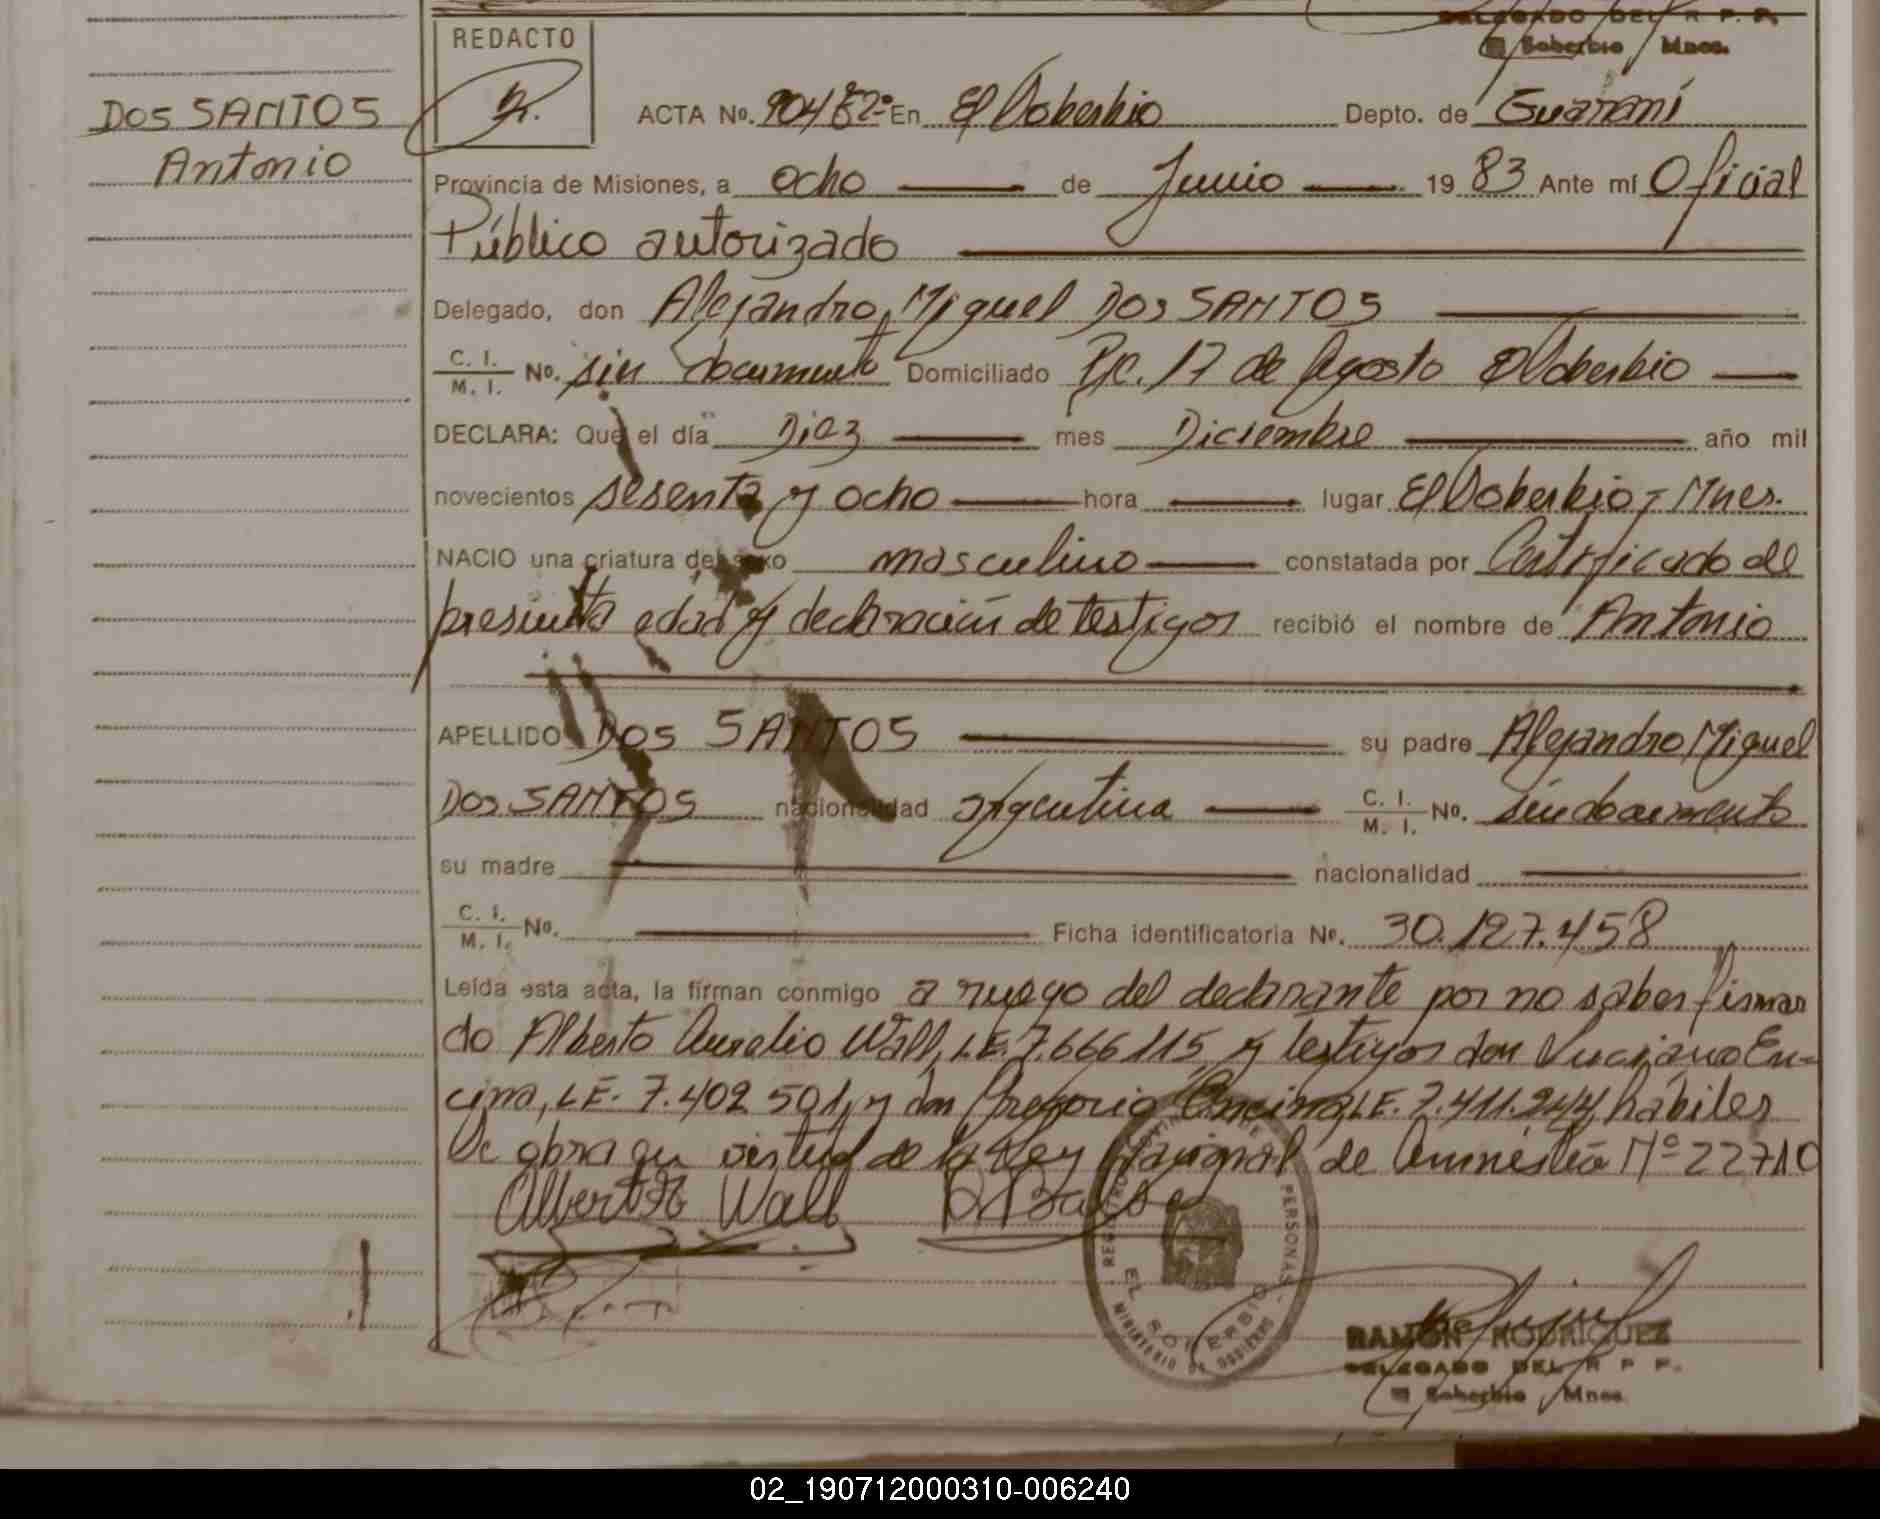 DELEGADO DEL R P. P.
El Soberbio Mnes.
REDACTO
DOS SANTOS
Antonio
ACTA No. 904 Eº2º En El Soberbio Depto. de Guaraní
Provincia de Misiones, a ocho de Junio 19 83 Ante mí Oficial
Público autorizado
Delegado, don Alejandro Miguel DOS SANTOS
C. I.
M. I. No. sin documento Domiciliado Pje. 17 de Agosto El Soberbio
DECLARA: Que el día Diez mes Diciembre año mil
novecientos sesenta y ocho hora lugar El Soberbio - Mnes.
NACIO una criatura del sexo masculino constatada por Certificado de
presunta edad y declaración de testigos recibió el nombre de Antonio
APELLIDO DOS SANTOS su padre Alejandro Miguel
DOS SANTOS nacionalidad argentina C. I.
M. I. No. sin documento
su madre nacionalidad
C. I.
M. I. No. Ficha identificatoria No. 30.127.458
Leída esta acta, la firman conmigo a ruego del declarante por no saber firmar
do Alberto Aurelio Wall, L.E. 7.666115, y testigos don Luciano En-
cina, L.E. 7.402 501, y don Gregorio Encina L.E. 7.411.244, hábiles
De obra en virtud de la Ley Nacional de Amnistía Nº 22710
Albert Wall
REGISTRO PROVINCIAL DE PERSONAS
EL SOBERBIO
MINISTERIO DE GOBIERNO
RAMON RODRIGUEZ
DELEGADO DEL R P P.
El Soberbio Mnes.
02_190712000310-006240